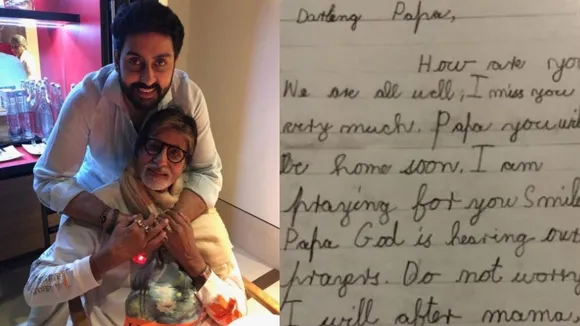 Darling Papa,
How are you
We are all well, I miss you
very much. Papa you will
be home soon. I am
praying for you Smile
Papa God is hearing our
prayers. Do not worry
I will after mama.